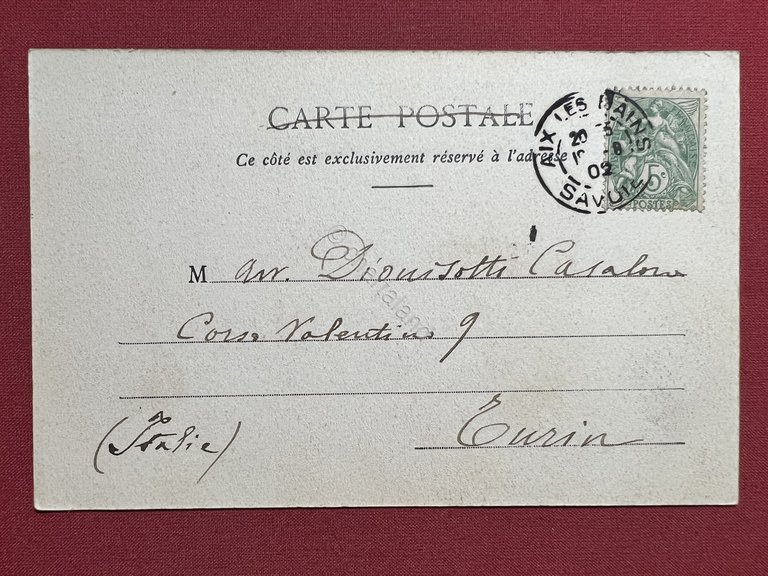 CARTE POSTALE
Ce côté est exclusivement réservé à l'adresse
AIX LES BAINS
20 5
02
SAVOIE
5c
POSTES
M avv. Dionisotti Casalone
Corso Valentino 9
Turin
(Italie)